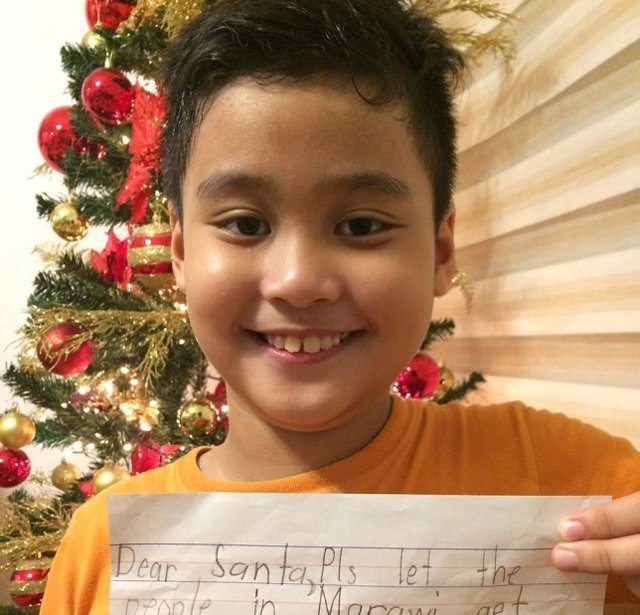 Dear Santa, Pls let the
people in Marawi get